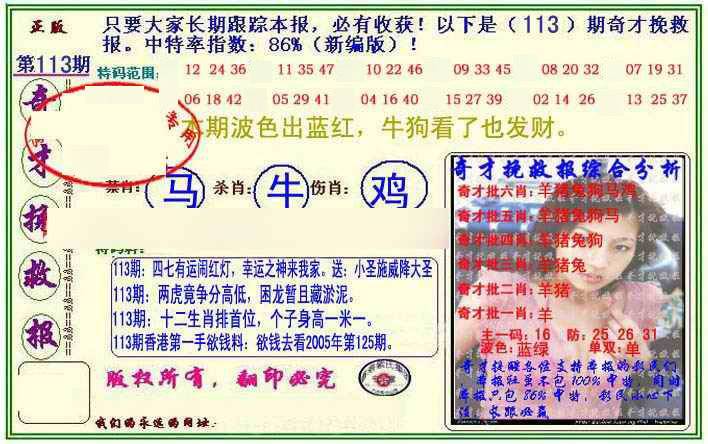 正版
只要大家长期跟踪本报，必有收获！以下是（113）期奇才挽救
报。中特率指数：86%（新编版）！
第113期
特码范围：
12 24 36 11 35 47 10 22 46 09 33 45 08 20 32 07 19 31
06 18 42 05 29 41 04 16 40 15 27 39 02 14 26 13 25 37
奇才挽救报
专用
本期波色出蓝红，牛狗看了也发财。
禁肖：马 杀肖：牛 伤肖：鸡
113期：四七有运闹红灯，幸运之神来我家。送：小圣施威降大圣
113期：两虎竟争分高低，困龙暂且藏淤泥。
113期：十二生肖排首位，个子身高一米一。
113期香港第一手欲钱料：欲钱去看2005年第125期。
版权所有，翻印必究
我们的永远的网址：
奇才挽救报综合分析
奇才批六肖：羊猪兔狗马鸡
奇才批五肖：羊猪兔狗马
奇才批四肖：羊猪兔狗
奇才批三肖：羊猪兔
奇才批二肖：羊猪
奇才批一肖：羊
主一码：16 防：25 26 31
波色：蓝绿 单双：单
奇才提醒各位支持本报的彩民们
本报驻虽不包100%中特，但时
本报只包86%中特，彩民小心下
注，长跟必赢